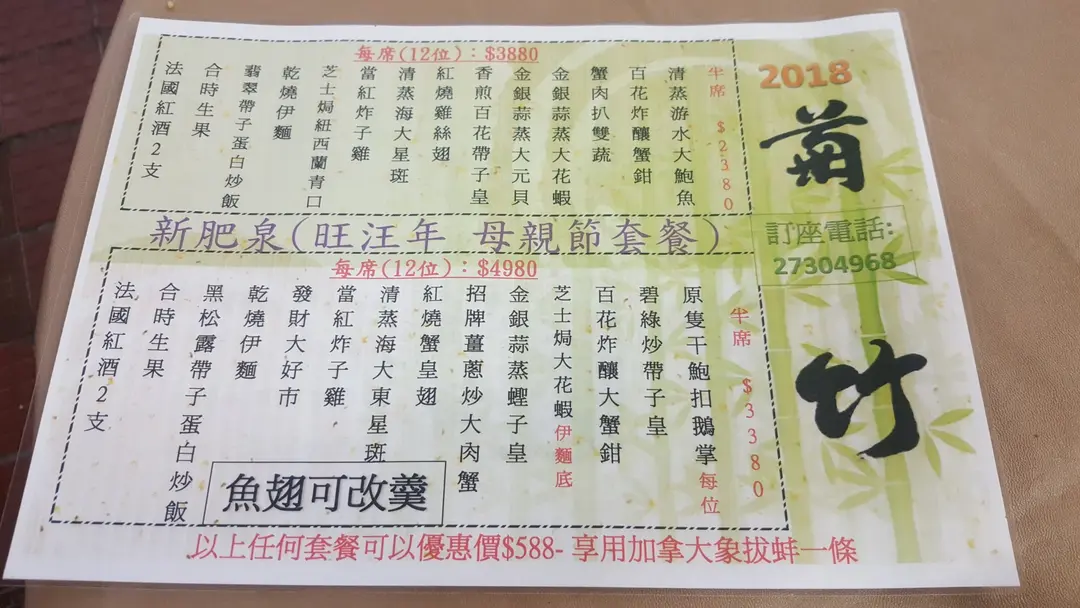 2018
菊
竹
訂座電話:
27304968
每席(12位)：$3880
半席 $2380
清蒸游水大鮑魚
百花炸釀蟹鉗
蟹肉扒雙蔬
金銀蒜蒸大花蝦
金銀蒜蒸大元貝
香煎百花帶子皇
紅燒雞絲翅
清蒸海大星斑
當紅炸子雞
芝士焗紐西蘭青口
乾燒伊麵
翡翠帶子蛋白炒飯
合時生果
法國紅酒2支
新肥泉(旺汪年 母親節套餐)
每席(12位)：$4980
半席 $3380
原隻干鮑扣鵝掌每位
碧綠炒帶子皇
百花炸釀大蟹鉗
芝士焗大花蝦伊麵底
金銀蒜蒸蟶子皇
招牌薑蔥炒大肉蟹
紅燒蟹皇翅
清蒸海大東星斑
當紅炸子雞
發財大好市
乾燒伊麵
黑松露帶子蛋白炒飯
合時生果
法國紅酒2支
魚翅可改羹
以上任何套餐可以優惠價$588- 享用加拿大象拔蚌一條